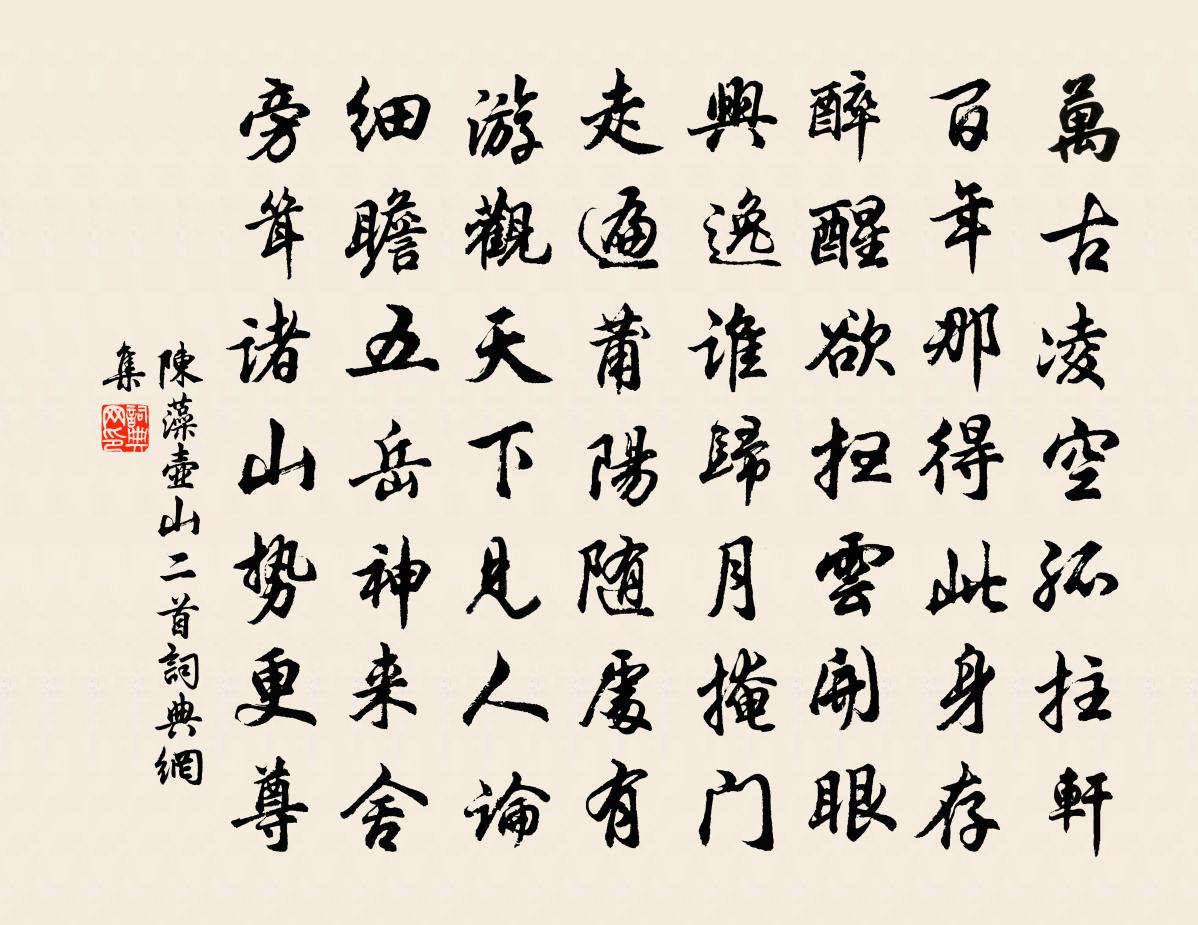 萬古凌空孤拄軒
百年那得此身存
醉醒欲抂雲開眼
興逸誰歸月掩门
走遍莆陽随處有
游觀天下見人論
细瞻五岳神来舍
旁耸诸山势更尊
陳藻壺山二首詞典網
集
詞典网印